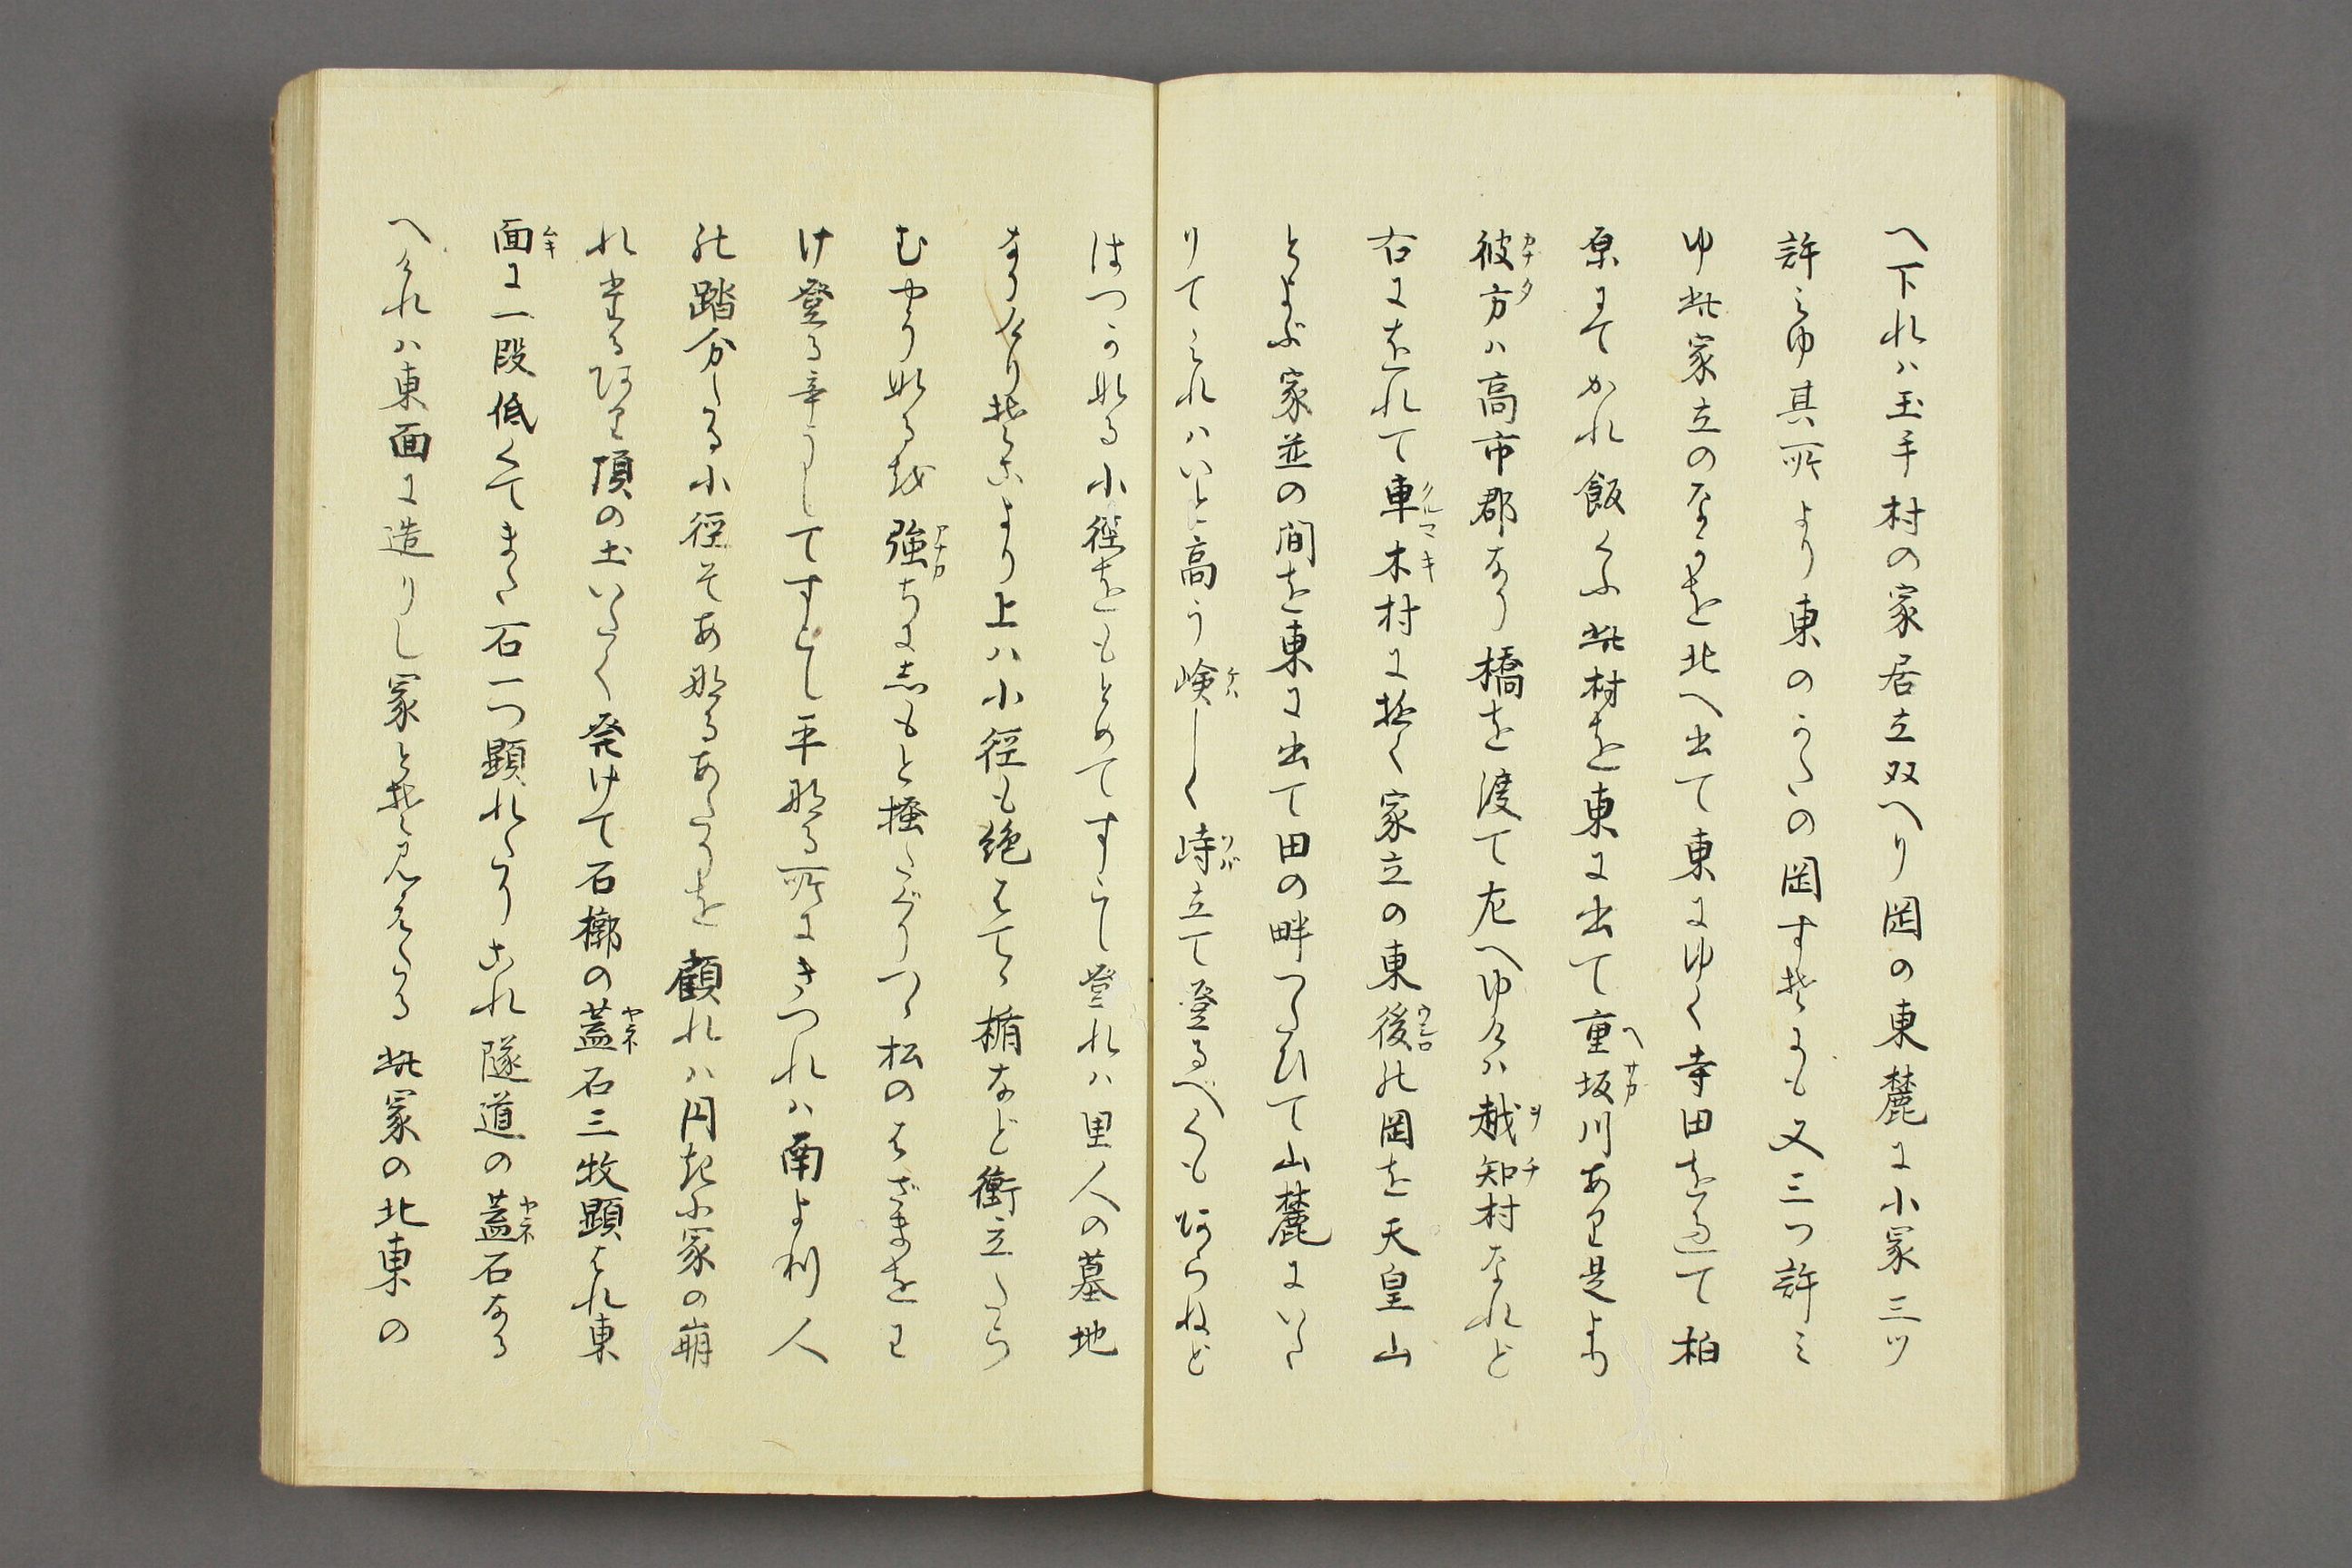 へ下れハ玉手村の家居立双へり岡の東麓に小冢三ツ
許ミゆ其所より東のかたの岡すそにも又三つ許ミ
ゆ此家立のなかを北へ出て東にゆく寺田を過て柏
原にてかれ飯くふ此村を東に出て重坂川あり是より
彼方ハ高市郡なり橋を渡て左へゆけハ越知村なれと
右にをれて車木村に越く家立の東後の岡を天皇山
とよぶ家並の間を東に出て田の畔つたひて山麓にいた
りてミれハいと高う険しく峙立て登るべくもあらねど
はつかなる小径をもとめてすこし登れハ里人の墓地
なりけりそこより上ハ小径も絶はてゝ楯など衝立たら
むやうなるを強ちに志もと掻たぐりつゝ松のはざまをわ
け登る辛うしてすこし平なる所にきつれハ南より人
の踏分たる小径そあなるあたりを顧れハ円き小冢の崩
れたるあり頂の土いたく発けて石槨の蓋石三牧顕はれ東
面に一段低くてまた石一つ顕れたりこれ隧道の蓋石なる
へけれハ東面に造りし冢とそ見えたる此冢の北東の